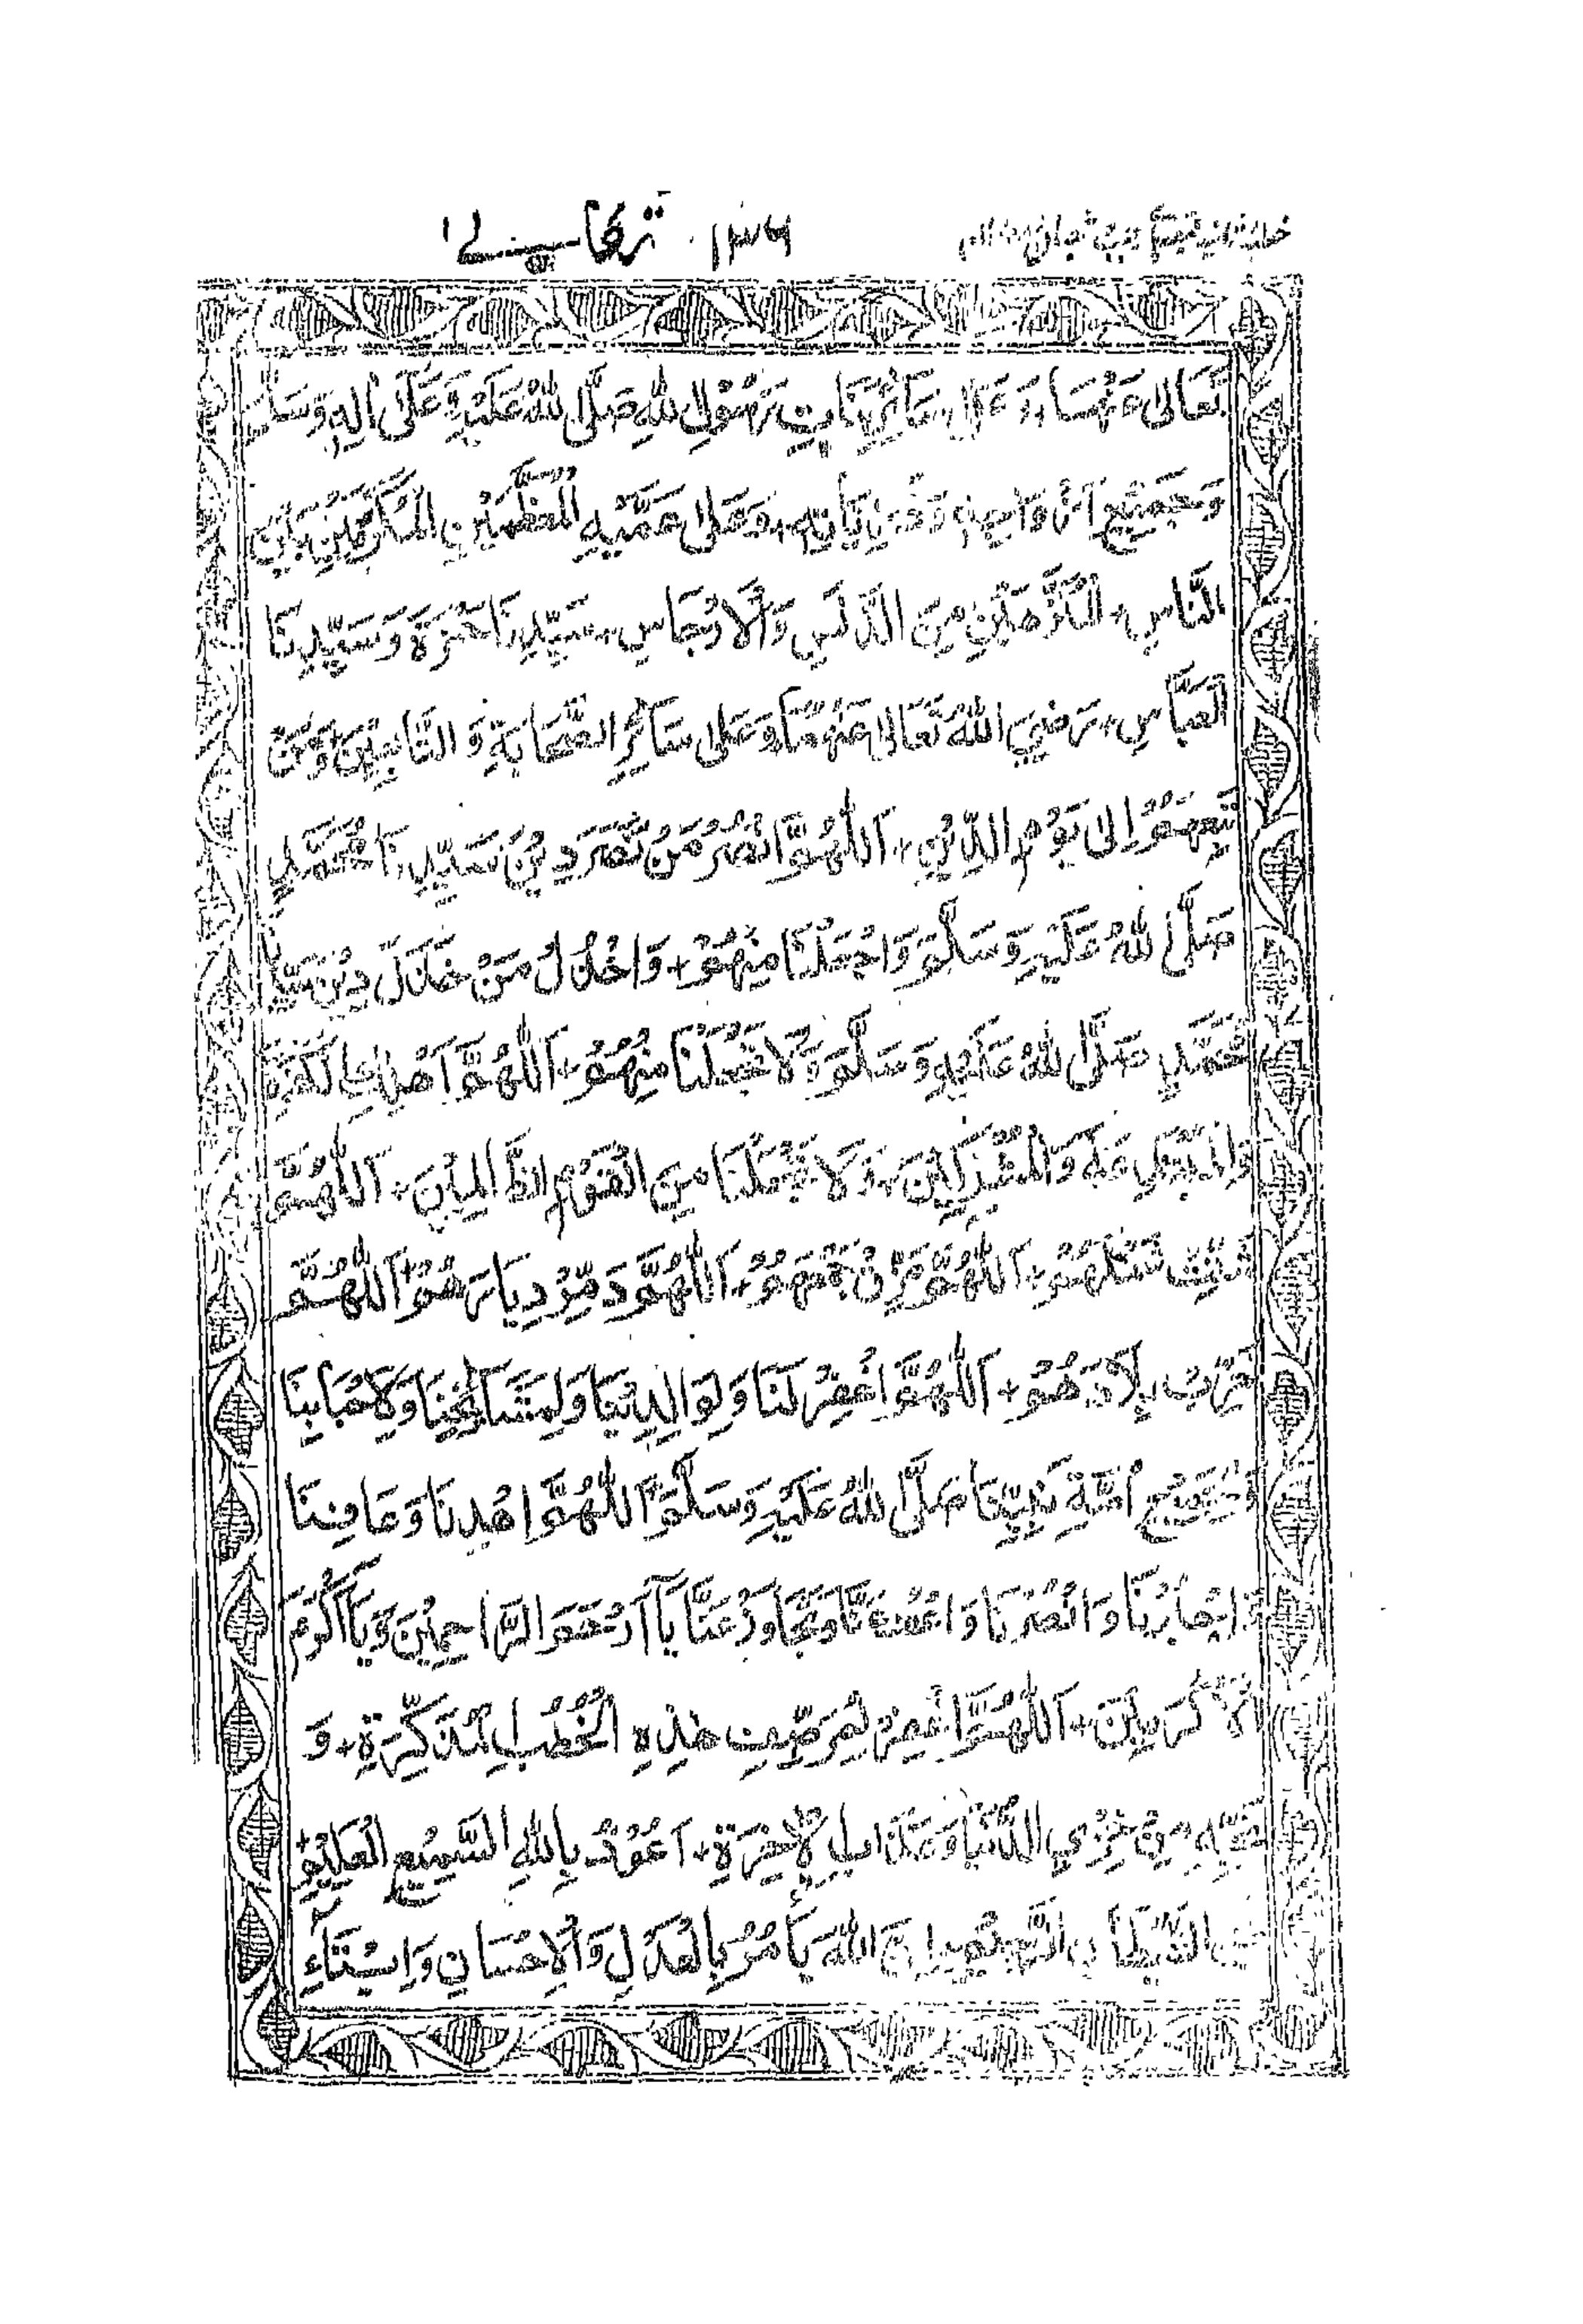 ۱۳۶
تَعَالٰى عَنْهَا، وَعَلٰى سَائِرِ بَنَاتِ رَسُوْلِ اللهِ صَلَّى اللهُ عَلَيْهِ وَعَلٰى اٰلِهٖ وَسَلَّمَ
وَجَمِيْعِ اَزْوَاجِهٖ وَذُرِّيَّاتِهٖ، وَعَلٰى عَمَّيْهِ الْمُعَظَّمَيْنِ الْمُكَرَّمَيْنِ بَيْنَ
النَّاسِ، الْمُنَزَّهَيْنِ مِنَ الدَّنَسِ وَالْاَرْجَاسِ، سَيِّدِنَا حَمْزَةَ وَسَيِّدِنَا
الْعَبَّاسِ، رَضِيَ اللهُ تَعَالٰى عَنْهُمَا، وَعَلٰى سَائِرِ الصَّحَابَةِ وَ التَّابِعِيْنَ وَمَنْ
تَبِعَهُمْ اِلٰى يَوْمِ الدِّيْنِ + اَللّٰهُمَّ انْصُرْ مَنْ نَصَرَ دِيْنَ سَيِّدِنَا مُحَمَّدٍ
صَلَّى اللهُ عَلَيْهِ وَسَلَّمَ وَاجْعَلْنَا مِنْهُمْ + وَاخْذُلْ مَنْ خَذَلَ دِيْنَ سَيِّدِنَا
مُحَمَّدٍ صَلَّى اللهُ عَلَيْهِ وَسَلَّمَ وَلَا تَجْعَلْنَا مِنْهُمْ + اَللّٰهُمَّ اَهْلِكِ الْكَفَرَةَ
وَالْمُبْتَدِعَةَ وَالْمُشْرِكِيْنَ، وَلَا تَجْعَلْنَا مِنَ الْقَوْمِ الظَّالِمِيْنَ + اَللّٰهُمَّ
شَتِّتْ شَمْلَهُمْ + اَللّٰهُمَّ مَزِّقْ جَمْعَهُمْ + اَللّٰهُمَّ دَمِّرْ دِيَارَهُمْ + اَللّٰهُمَّ
خَرِّبْ بِلَادَهُمْ + اَللّٰهُمَّ اغْفِرْ لَنَا وَلِوَالِدِيْنَا وَلِمَشَائِخِنَا وَلِاَحْبَابِنَا
وَلِجَمِيْعِ اُمَّةِ نَبِيِّنَا صَلَّى اللهُ عَلَيْهِ وَسَلَّمَ + اَللّٰهُمَّ اهْدِنَا وَعَافِنَا
وَانْصُرْنَا وَاعْفُ عَنَّا وَتَجَاوَزْ عَنَّا يَا اَرْحَمَ الرَّاحِمِيْنَ وَيَا اَكْرَمَ
الْاَكْرَمِيْنَ + اَللّٰهُمَّ اغْفِرْ لِمُرَصِّفِ هٰذِهِ الْخُطَبِ الْمُذَكِّرَةِ + وَ
نَجِّهٖ مِنْ خِزْيِ الدُّنْيَا وَعَذَابِ الْاٰخِرَةِ + اَعُوْذُ بِاللهِ السَّمِيْعِ الْعَلِيْمِ
مِنَ الشَّيْطَانِ الرَّجِيْمِ اِنَّ اللهَ يَأْمُرُ بِالْعَدْلِ وَالْاِحْسَانِ وَاِيْتَآءِ